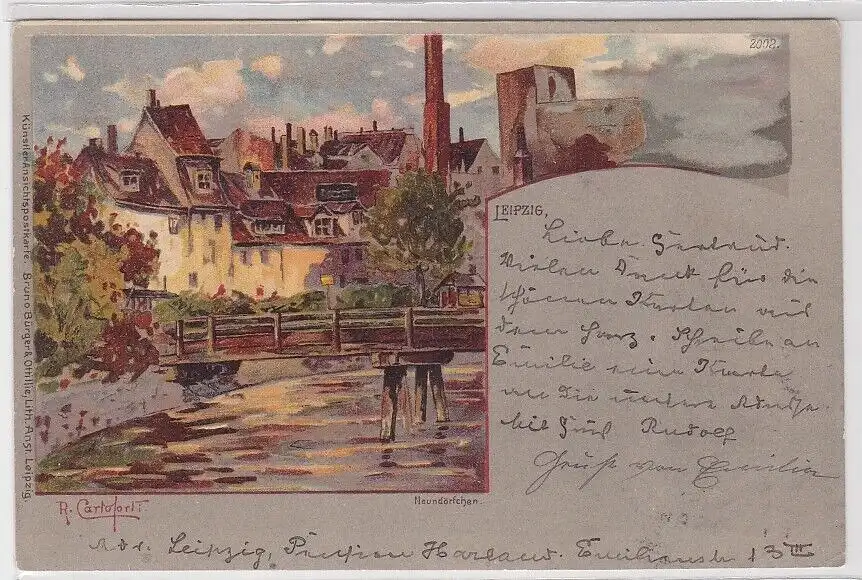 2002.
LEIPZIG,
Liebe Gertrud.
Vielen Dank für die
schönen Karten aus
dem Harz. Schreibe an
Emilie eine Karte
an die untere Adresse.
Gruß Rudolf
Gruß von Emilie
Neundörfchen.
R. Cartoforti
Adr. Leipzig, Pension Harland. Emilienstr 13 III
Künstler-Ansichtspostkarte. Bruno Bürger & Ottillie, Lith. Anst. Leipzig.